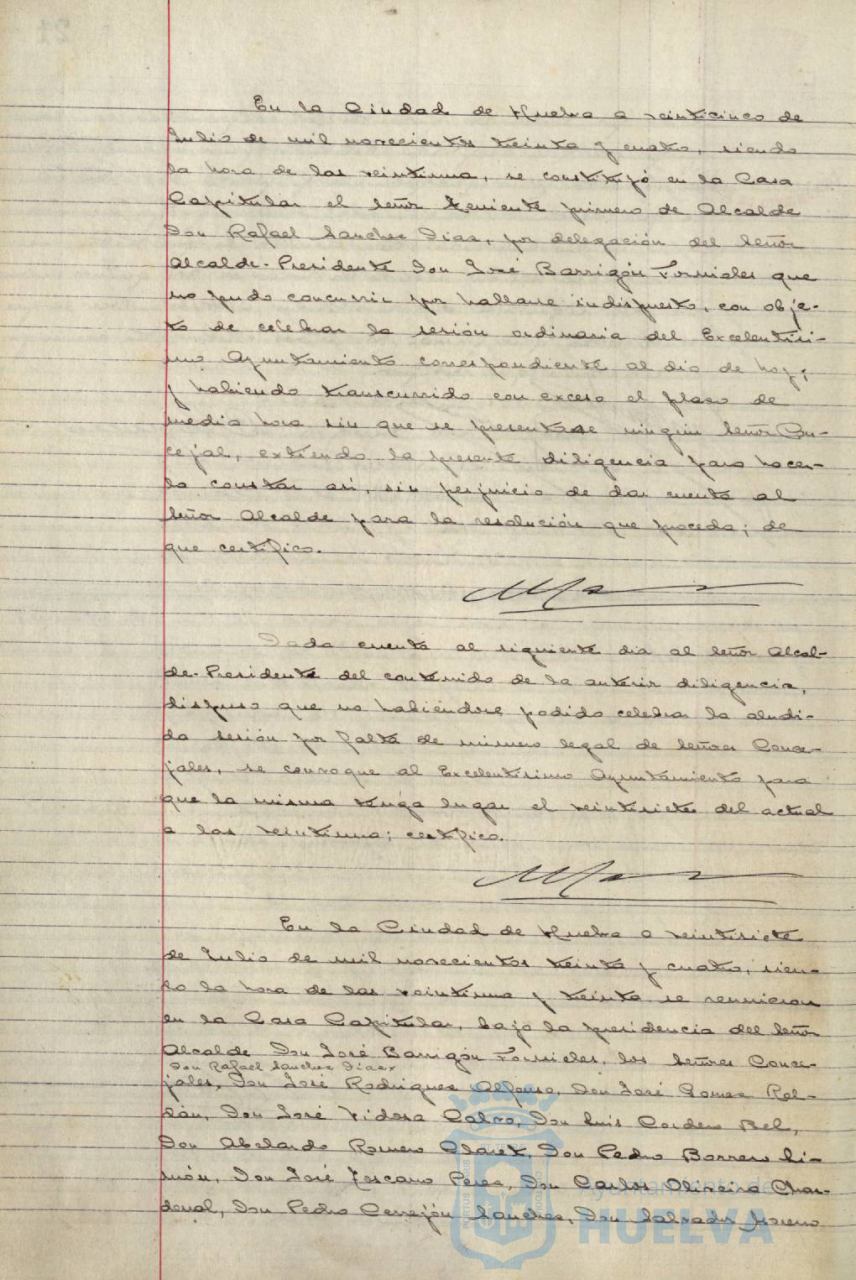 En la Ciudad de Huelva a veinticinco de
Julio de mil novecientos treinta y cuatro, siendo
la hora de las veintiuna, se constituyó en la Casa
Capitular el Señor Teniente primero de Alcalde
Don Rafael Sanchez Diaz, por delegación del Señor
Alcalde-Presidente Don José Barrigón Fornieles que
no pudo concurrir por hallarse indispuesto, con obje-
to de celebrar la sesión ordinaria del Excelentísi-
mo Ayuntamiento correspondiente al dia de hoy;
y habiendo transcurrido con exceso el plazo de
media hora sin que se presentase ningún Señor Con-
cejal, extiendo la presente diligencia para hacer-
lo constar así, sin perjuicio de dar cuenta al
Señor Alcalde para la resolución que proceda; de
que certifico.
Dada cuenta al siguiente dia al Señor Alcal-
de-Presidente del contenido de la anterior diligencia,
dispuso que no habiéndose podido celebrar la aludi-
da sesión por falta de número legal de Señores Conce-
jales, se convoque al Excelentísimo Ayuntamiento para
que la misma tenga lugar el veintisiete del actual
a las veintiuna; certifico.
En la Ciudad de Huelva a veintisiete
de Julio de mil novecientos treinta y cuatro, sien-
do la hora de las veintiuna y treinta se reunieron
en la Casa Capitular, bajo la presidencia del Señor
Alcalde Don José Barrigón Fornieles, los Señores Conce-
Don Rafael Sanchez Diaz
jales, Don José Rodriguez Alfonso, Don José Gomez Rol-
dán, Don José Vidosa Calvo, Don Luis Cordero Bel,
Don Abelardo Romero Claret, Don Pedro Borrero Li-
món, Don José Toscano Perez, Don Carlos Oliveira Char-
denal, Don Pedro Cerrejón Sanchez, Don Salvador Moreno
Ayuntamiento de
HUELVA